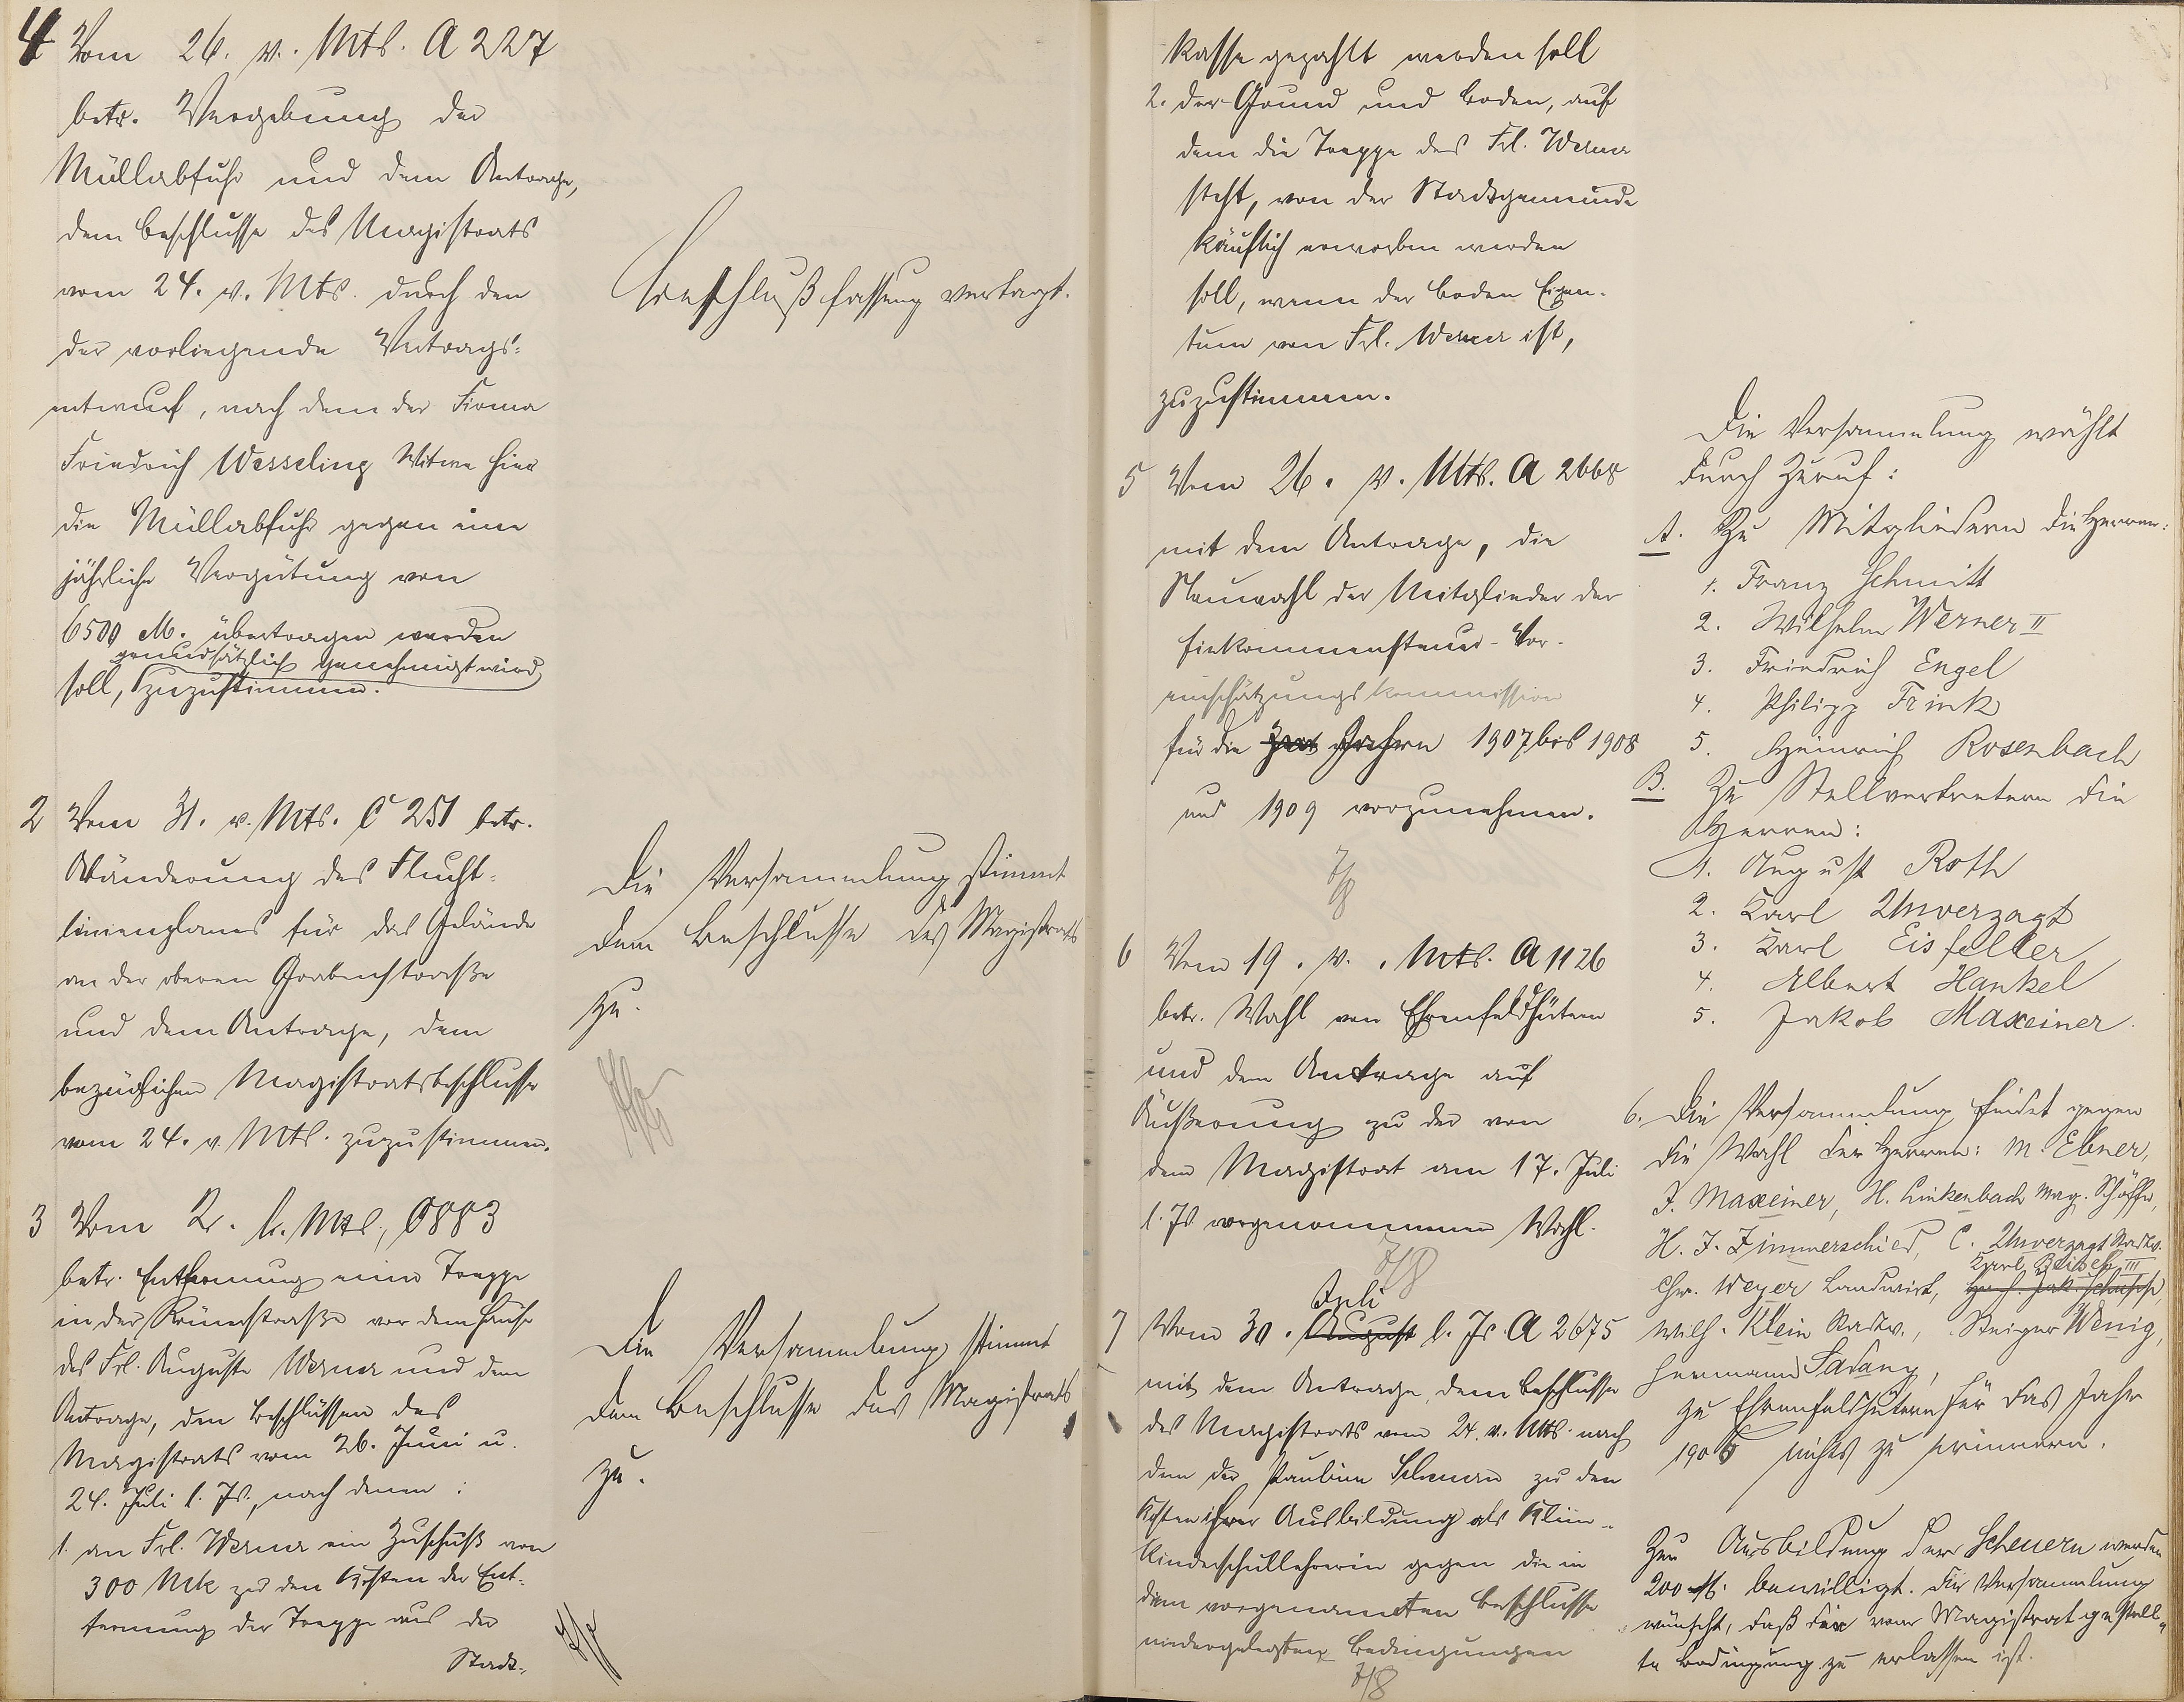 4 Vom 26. v. Mts. A 227
betr. Vergebung der
Müllabfuhr und dem Antrage,
dem Beschlusse des Magistrats
vom 24. v. Mts. durch den
der vorliegende Vertrags-
entwurf, nach dem der Firma
Friedrich Wesseling Witwe hier
die Müllabfuhr gegen eine
jährliche Vergütung von
6500 M. übertragen werden
grundsätzlich genehmigt wird
soll, zuzustimmen.
Beschlußfassung vertagt.
2 Vom 31. v. Mts. C 251 betr.
Abänderung des Flucht-
linienplanes für das Gelände
an der oberen Grabenstraße
und dem Antrage, dem
bezüglichen Magistratsbeschlusse
vom 24. v. Mts. zuzustimmen.
Die Versammlung stimmt
dem Beschlusse des Magistrats
zu.
3 Vom 2. l. Mts., C 883
betr. Entfernung einer Treppe
in der Römerstraße vor dem Hause
des Frl. Auguste Werner und dem
Antrage, den Beschlüssen des
Magistrats vom 26. Juni u.
24. Juli l. Js., nach denen:
1. an Frl. Werner ein Zuschuß von
300 Mk zu den Kosten der Ent-
fernung der Treppe aus der
Stadt-
Die Versammlung stimmt
dem Beschlusse des Magistrats
zu.
Kasse gezahlt werden soll
2. der Grund und Boden, auf
dem die Treppe des Frl. Werner
steht, von der Stadtgemeinde
käuflich erworben werden
soll, wenn der Boden Eigen-
tum von Frl. Werner ist,
zuzustimmen.
5 Vom 26. v. Mts. A 2668
mit dem Antrage, die
Neuwahl der Mitglieder der
Einkommensteuer-Vor-
einschätzungskommission
für die Jahren 1907 bis 1908
und 1909 vorzunehmen.
7/8
Die Versammlung wählt
durch Zuruf:
A. Zu Mitgliedern die Herren:
1. Franz Schmitt
2. Wilhelm Werner II
3. Friedrich Engel
4. Philipp Frink
5. Heinrich Rosenbach
B. Zu Stellvertretern die
Herren:
1. August Roth
2. Karl Unverzagt
3. Karl Eisfeller
4. Albert Hankel
5. Jakob Maxeiner.
6 Vom 19. v. Mts. A 1126
betr. Wahl von Ehrenfeldhütern
und dem Antrage auf
Äußerung zu der von
dem Magistrat am 17. Juli
l. Js vorgenommenen Wahl.
7/8
6. Die Versammlung findet gegen
die Wahl der Herren: M. Ebner,
J. Maxeiner, H. Linkenbach Mag. Schöffe,
H. J. Zimmerschied, C. Unverzagt Stadtv.
Karl III
Chr. Meyer Landwirt,
Wilh. Klein Stadtv., Steiger Wenig,
Hermann Sadany,
zu Ehrenfeldhütern für das Jahr
1906 nichts zu erinnern.
Juli
7 Vom 30. August l. Js A 2675
mit dem Antrage, dem Beschlusse
des Magistrats vom 24. v. Mts. nach
dem der Pauline Scheuern zu den
Kosten ihrer Ausbildung als Klein-
kinderschullehrerin gegen die in
dem vorgenannten Beschlusse
niedergelegten Bedingungen
7/8
Zur Ausbildung der Scheuern werden
200 M. bewilligt. Die Versammlung
wünscht, daß die vom Magistrat gestell-
te Bedingung zu erlassen ist.